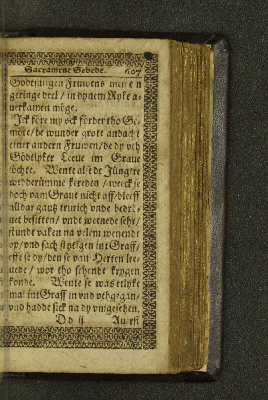 Sacrament Gebede. 607
Godtsaligen Fruwens men en
geringe deel / in dynem Ryke a-
nerkamen möge.
Ick före my ock förder tho Ge-
möte / de wunder grote andacht
einer andern Fruwen / de dy vth
Gödtlyker Leeue im Graue
söchte. Wente alse de Jüngre
wedderümme kereden / weeck se
doch vam Graue nicht aff / bleeff
aldar gantz trurich vnde bedrö-
uet besitten / vnde weenede sehr /
stundt vaken na velem wenende
vp / vnd sach stytzgen int Graff /
effte se dy / den se van Herten lee-
uede / wor tho sehende krygen
konde. Wente se was etlyke
mal int Graff in vnd vthgegan /
vnd hadde sick na dy vmgesehen.
Dd ij Auerst